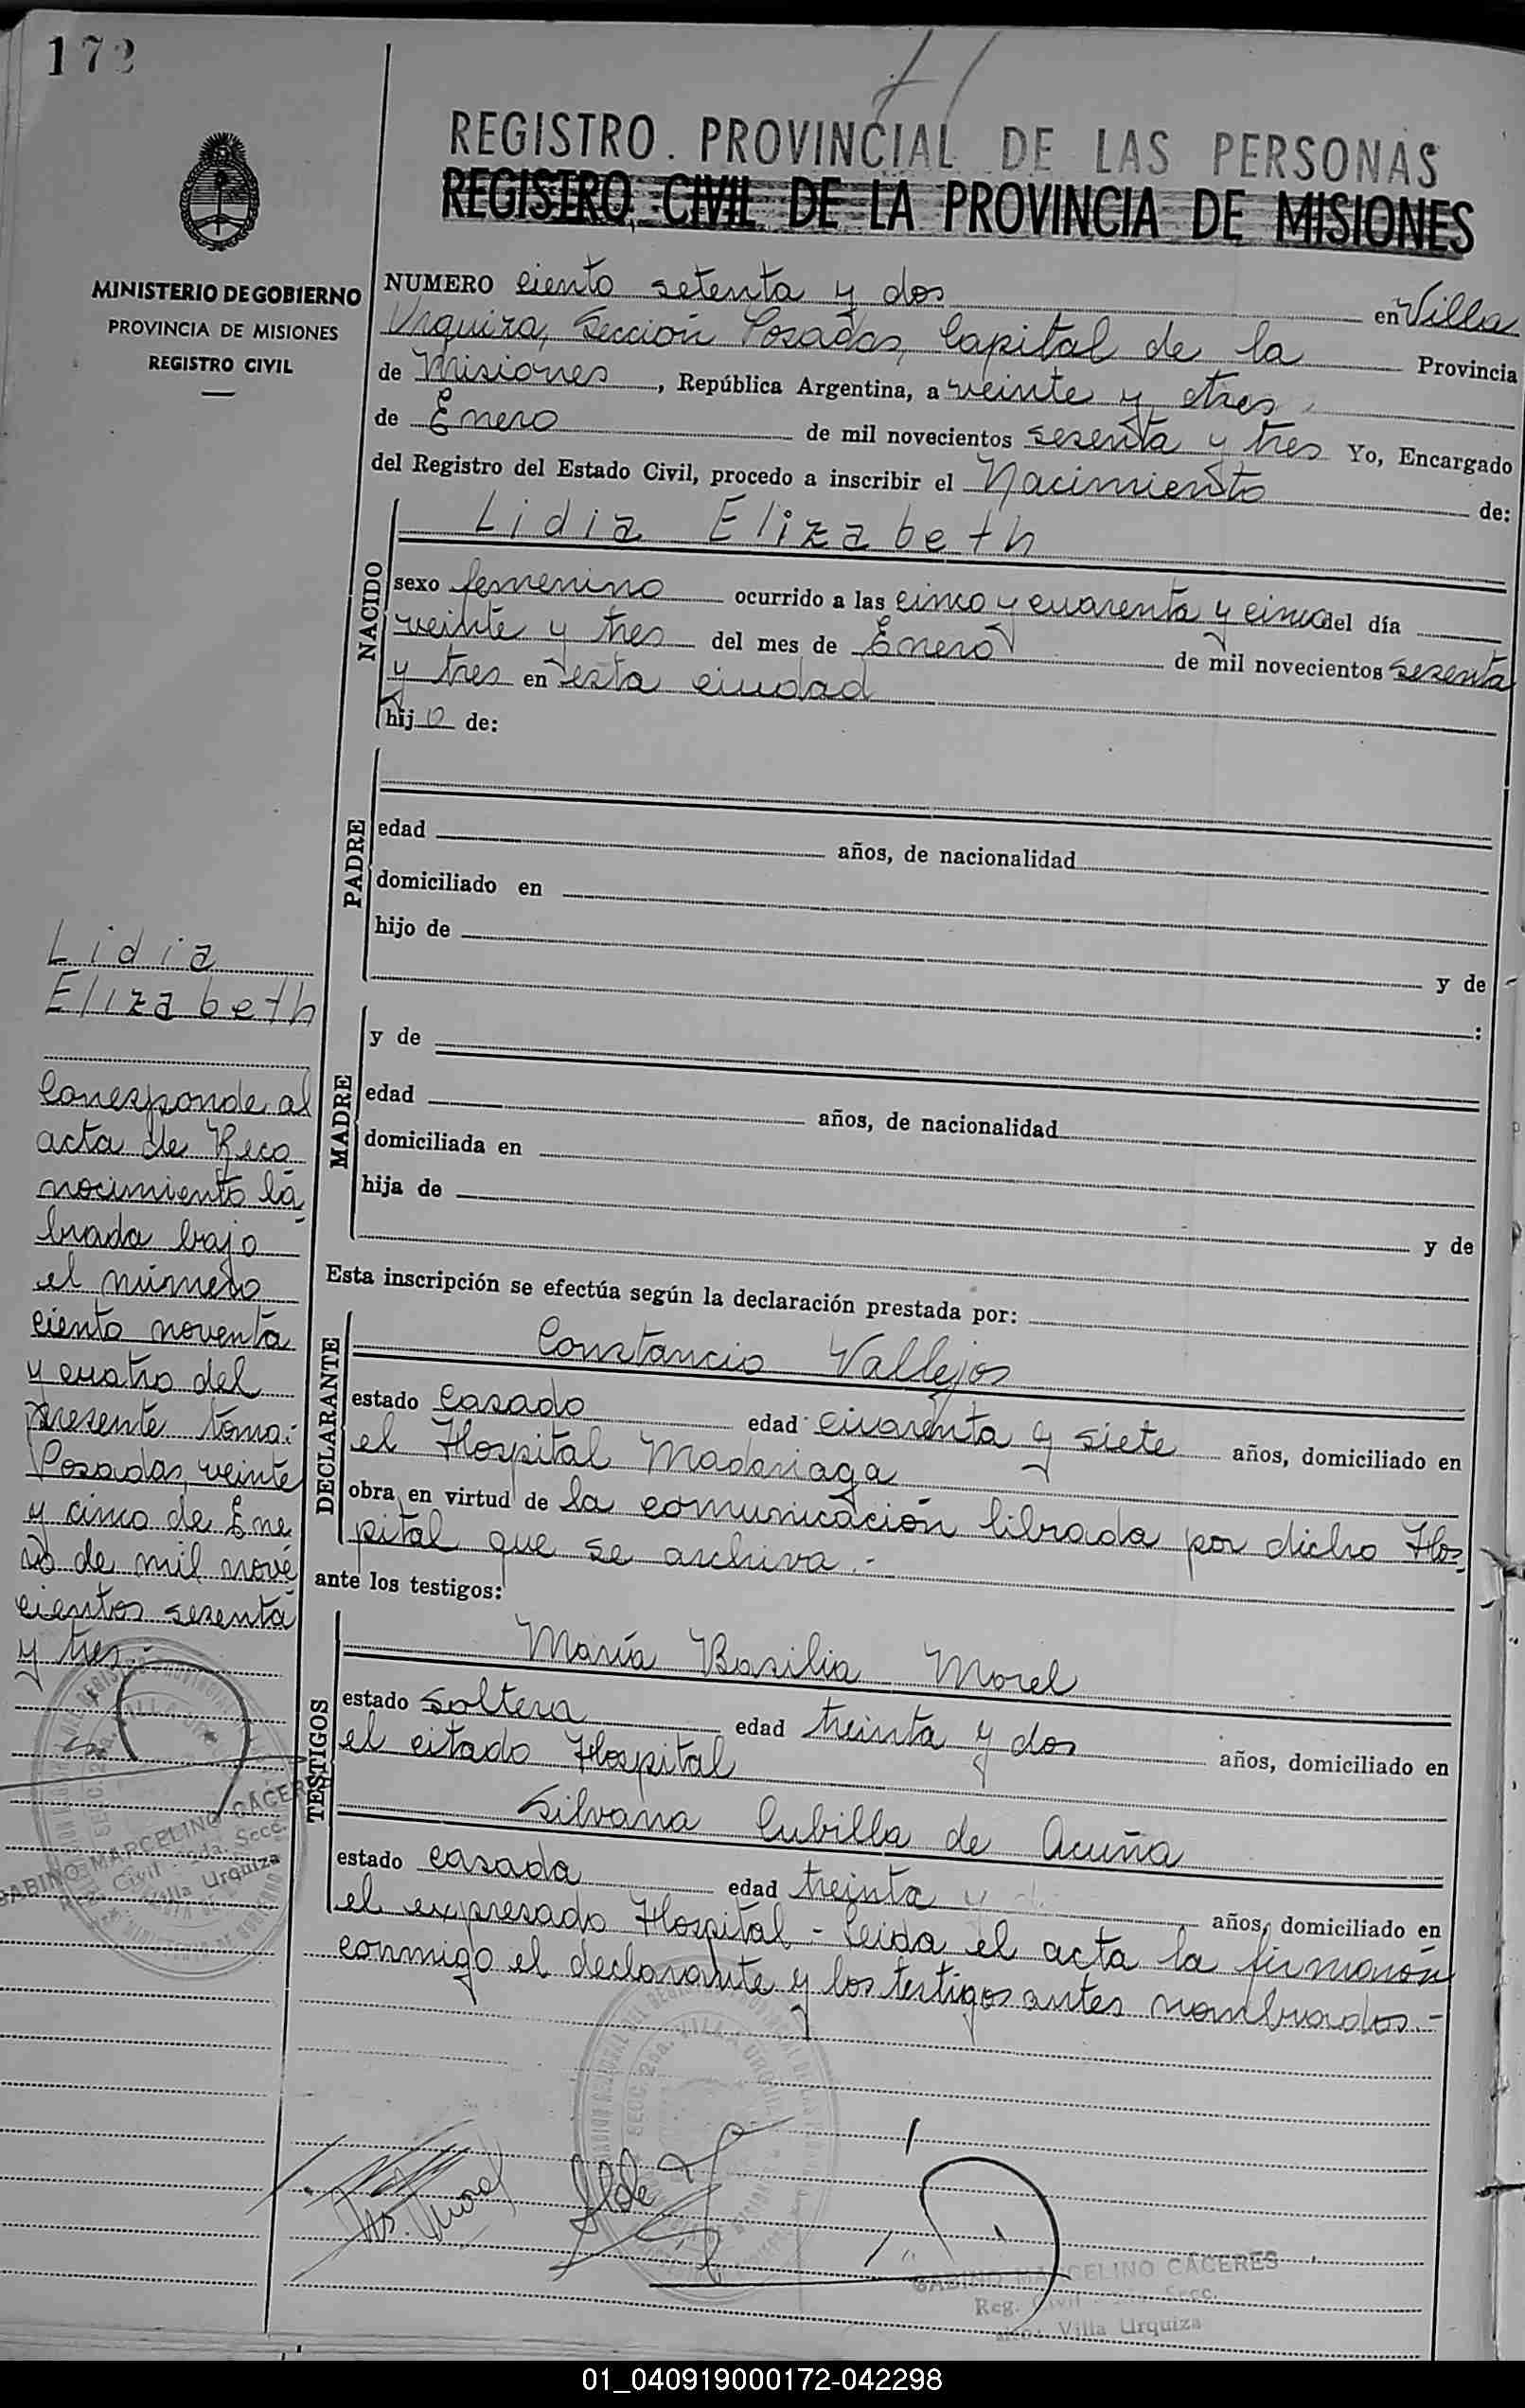 172
REGISTRO PROVINCIAL DE LAS PERSONAS
REGISTRO CIVIL DE LA PROVINCIA DE MISIONES
MINISTERIO DE GOBIERNO
PROVINCIA DE MISIONES
REGISTRO CIVIL
NUMERO ciento setenta y dos en Villa
Urquiza, Sección Posadas, Capital de la Provincia
de Misiones, República Argentina, a veinte y tres
de Enero de mil novecientos sesenta y tres Yo, Encargado
del Registro del Estado Civil, procedo a inscribir el Nacimiento de:
NACIDO
Lidia Elizabeth
sexo femenino ocurrido a las cinco y cuarenta y cinco del día
veinte y tres del mes de Enero de mil novecientos sesenta
y tres en esta ciudad
hij de:
PADRE
edad años, de nacionalidad
domiciliado en
hijo de y de
:
MADRE
y de
edad años, de nacionalidad
domiciliada en
hija de y de
Esta inscripción se efectúa según la declaración prestada por:
DECLARANTE
Constancio Vallejos
estado casado edad cuarenta y siete años, domiciliado en
el Hospital Madariaga
obra en virtud de la comunicación librada por dicho Hos-
pital que se archiva.-
ante los testigos:
TESTIGOS
María Basilia Morel
estado soltera edad treinta y dos años, domiciliado en
el citado Hospital
Silvana Cubilla de Acuña
estado casada edad treinta y años, domiciliado en
el expresado Hospital - Leida el acta la firmaron
conmigo el declarante y los testigos antes nombrados.-
Lidia
Elizabeth
Corresponde al
acta de Reco
nocimiento la
brada bajo
el número
ciento noventa
y cuatro del
presente tomo.
Posadas, veinte
y cinco de Ene
ro de mil nove
cientos sesenta
y tres.-
GABINO MARCELINO CACERES
Reg. Civil 2da. Secc.
Villa Urquiza
GABINO MARCELINO CACERES
Reg. Civil Secc.
Villa Urquiza
01_040919000172-042298